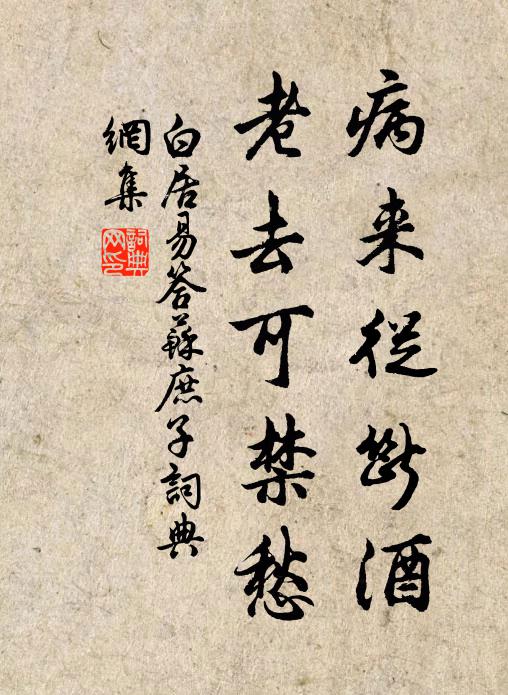 病来從斷酒
老去可禁愁
白居易答蘇庶子詞典
網集
詞典
网印